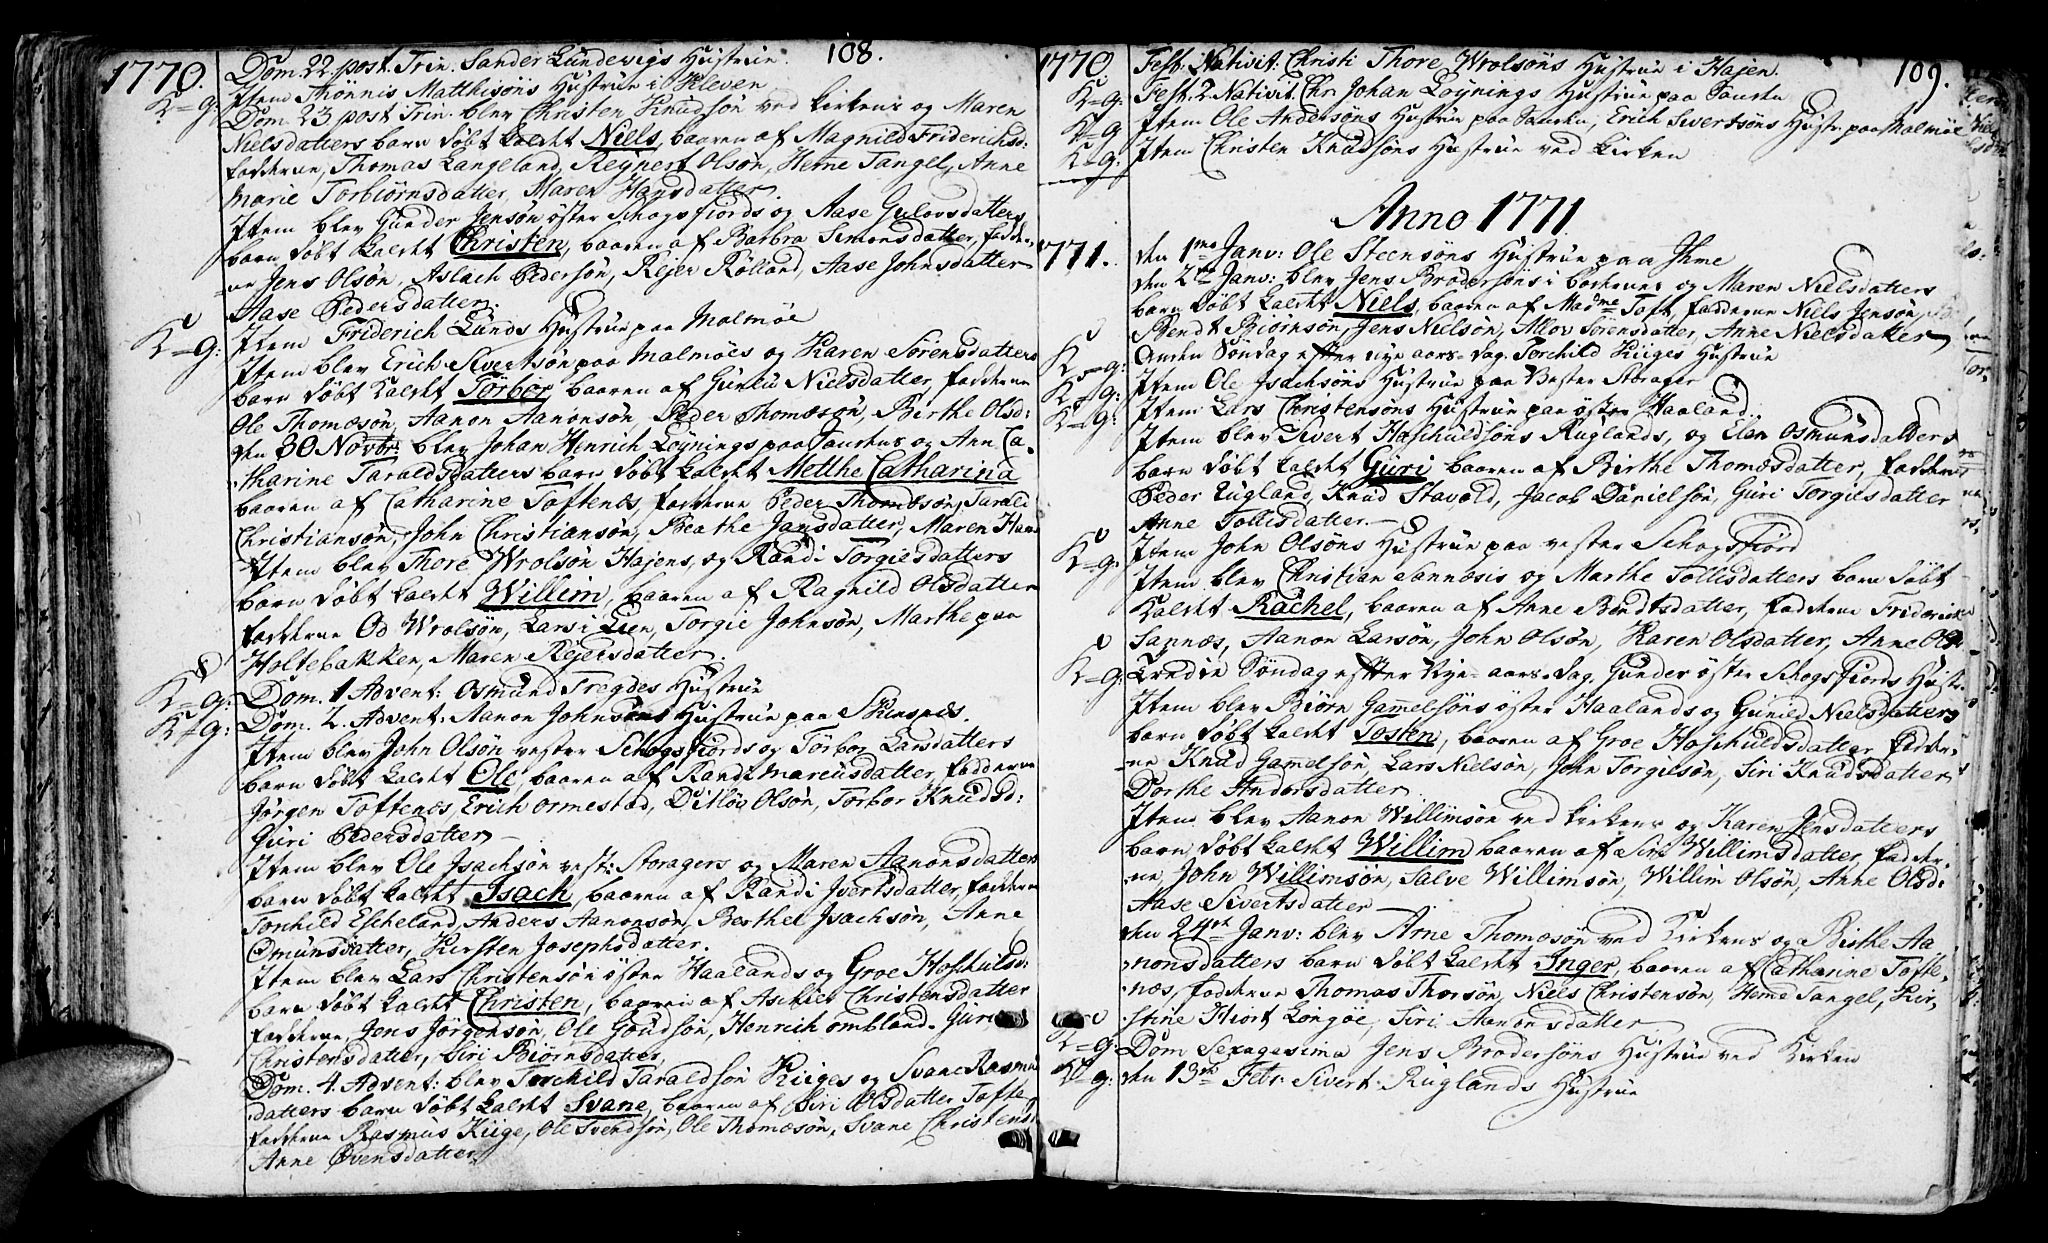 108.
1770. Dom. 22. post. Trin. Sander Lundevigs Hustrue.
K=g: Item Thönnis Matthisöns Hustrue i Kleven
Dom. 23 post Trin. blev Christen Knudsön ved Kirkens og Maren
Nielsdatters barn döbt kaldt Niels, baaren af Magnild Friderichsd:
fadderne, Thomas Langeland, Reynert Olsön, Herne Tangel, Anne
Marie Torbiörnsdatter, Maren Haysdatter.
Item blev Gunder Jensön öster Schogsfiords og Aase Gulovsdatters
barn döbt kaldt Christen, baaren af Barbra Simonsdatter, fadder-
ne Jens Olsön, Aslach Pedersön, Rejer Rölland, Aase Johnsdatter
Aase Pedersdatter.
K=g: Item Friderich Lunds Hustrue paa Malmöe
Item blev Erich Sivertsön paa Malmöes og Karen Sörensdatters
barn döbt kaldt Torbor, baaren af Gunlu Nielsdatter, fadderne
Ole Thomæsön, Aanon Aanonsön, Peder Thomæsön, Birthe Olsd:
den 30 Novbr: blev Johan Hinrich Löynings paa Tauskus og Ann Ca-
tharine Taraldsdatters barn döbt kaldt Metthe Catharina
baaren af Catharine Toftenæs, fadderne Peder Thomæsön, Tarald
Christiansön, John Christiansön, Beathe Jansdatter, Maren Hans
Item blev Thore Wrolsön Hajens, og Randi Torgiesdatters
barn döbt kaldt Willim, baaren af Ragnild Olsdatter
fadderne Od Wrolsön, Lars i Lien, Torgie Johnsön, Marthe paa
Holtebakken, Maren Rejersdatter.
K=g: Dom. 1 Advent: Osmund Tregdes Hustrue
K=g: Dom. 2. Advent: Aanon Johnsöns Hustrue paa Skinsnæs.
Item blev John Olsön vester Schogsfiords og Torbor Larsdatters
barn döbt kaldt Ole, baaren af Randi Marcusdatter, fadderne
Jörgen Toftenæs, Erich Ormestad, Ditlöv Olsön, Torbor Knudsd:
Guri Pedersdatter
Item blev Ole Isachsön vest: Storagers og Maren Aanonsdatters
barn döbt kaldt Isach, baaren af Randi Ivertsdatter, fadderne
Torchild Escheland, Anders Aanonsön, Berthel Isachsön, Anne
Omunsdatter, Kirsten Josephsdatter.
Item blev Lars Christensön öster Haalands og Groe Hoschulsd:
barn döbt kaldt Christen, baaren af Aschier Christensdatter
fadderne, Jens Jörgensön, Ole Goudsön, Henrich Ombland. Guri
Christensdatter, Siri Biörnsdatter,
Dom. 4. Advent: blev Torchild Taraldsön Kiiges og Svane Rasmus
datters barn döbt kaldt Svane, baaren af Siri Olsdatter Tofte,
fadderne Rasmus Kiige, Ole Svendsön, Ole Thomæsön, Svane Christens
Anne Ovensdatter
109.
1770. Fest: Nativit: Christi Thore Wrolsöns Hustrue i Hajen.
K=g: Fest. 2 Nativit. Chr. Johan Löynings Hustrue paa Tausku
K=g Item Ole Andersöns Hustrue paa Sanchu, Erich Sivertsöns Hustr: paa Malmöe
K=g: Item Christen Knudsöns Hustrue ved Kirken
Anno 1771
1771. den 1me Janv: Ole Steensöns Hustrue paa Ihme
den 2den Janv: blev Jens Brodersöns i bochenes og Maren Nielsdatters
barn döbt kaldt Niels, baaren af Madme Toft, fadderne Niels Jensön,
Bendt Biörnsön, Jens Nielsön, Allov Sörensdatter, Anne Nielsdatter
K=g: Anden Söndag efter nye aars-dag. Torchild Kiiges Hustrue
K=g: Item Ole Isachsöns Hustrue paa Vester Storager
K=g: Item Lars Christensöns Hustrue paa öster Haaland.
Item blev Sivert Haschuldsöns Ruglands, og Elen Osmunsdatters
barn döbt kaldt Guri baaren af Birthe Thomæsdatter, fadderne
Peder Rugland, Knud Stavold, Jacob Danielsön, Guri Torgiesdatter
Anne Tollisdatter.
K=g: Item John Olsöns Hustrue paa vester Schogsfiord
Item blev Christian Sannæsis og Marthe Tollisdatters barn döbt
kaldt Rachel, baaren af Anne Bendtsdatter, fadderne Friderich
Sannæs, Aanon Larsön, John Olsön, Karen Olsdatter, Anne Ols
K=g: Tredie Söndag efter Nye-aars-dag. Gunder öster Schogsfiords Hustr.
Item blev Biörn Gamelsöns öster Haalands og Gunild Nielsdatters
barn döbt kaldt Tosten, baaren af Groe Hoschuldsdatter, fadder-
ne Knud Gamelsön, Lars Nielsön, John Torgilsön, Siri Knudsdatter
Dorthe Andersdatter.
Item blev Aanon Willimsön ved Kirkens og Karen Jensdatters
barn döbt kaldt Willim baaren af Siri Willimsdatter, fadder-
ne John Willimsön, Salve Willimsön, Willim Olsön, Anne Olsd:
Aase Sivertsdatter
den 24de Janv: blev Arne Thomæsön ved Kirkens og Birthe Aa
nonsdatters barn döbt kaldt Inger, baaren af Catharine Tofte-
næs, fadderne Thomas Thorsön, Niels Christensön, Herne Tangel, Kir-
stine Hiort Longöe, Siri Aanonsdatter
K=g: Dom Sexagesima Jens Brodersöns Hustrue ved Kirken
K=g: den 13de Febr: Sivert Ruglands Hustrue